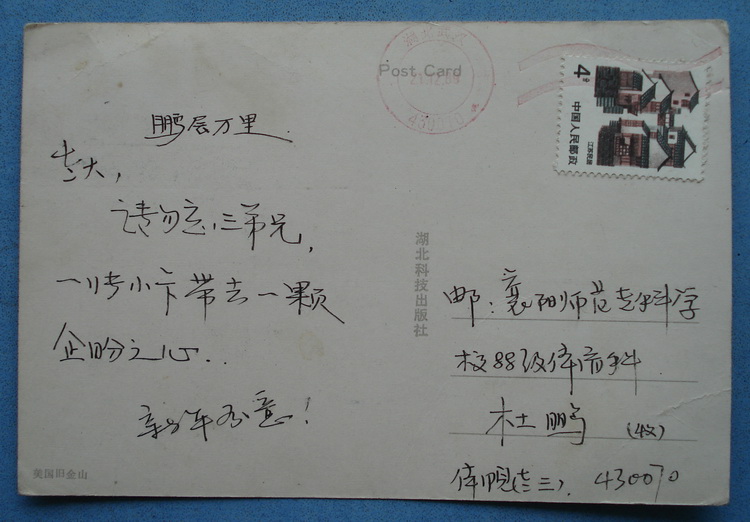 Post Card
湖北
430070
4分
中国人民邮政
江苏民居
鹏层万里
老大，
请勿忘三弟兄，
一张小卡带去一颗
企盼之心..
新年如意！
湖北科技出版社
邮：襄阳师范专科学
校88级体育专科
杜鹏 (收)
体院(老三). 430070
美国旧金山